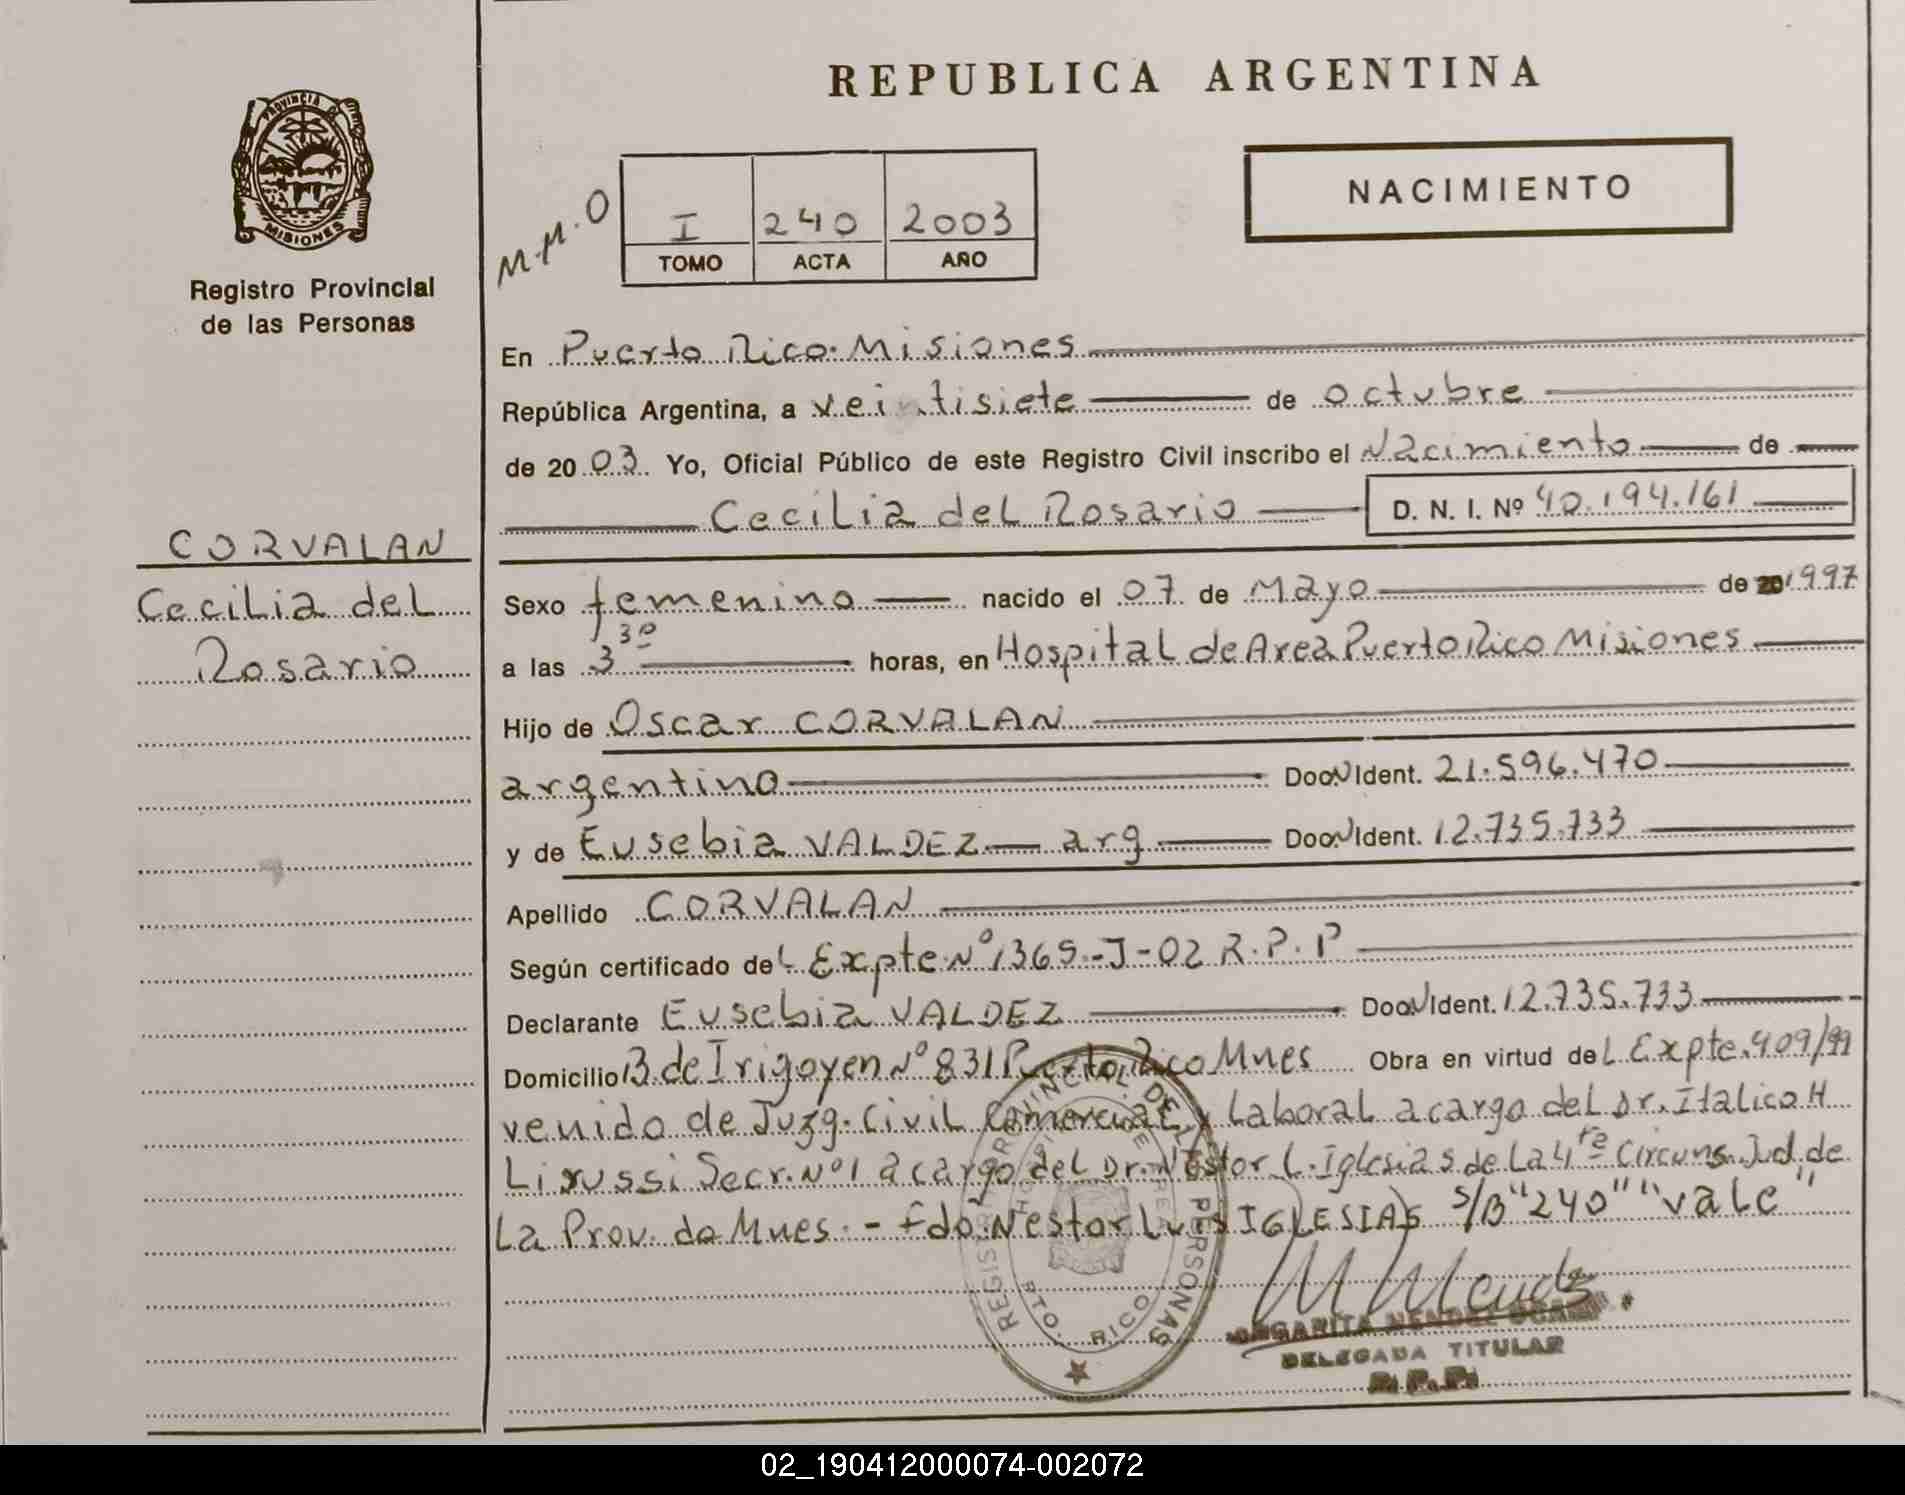 PROVINCIA DE
MISIONES
Registro Provincial
de las Personas
CORVALAN
Cecilia del
Rosario
REPUBLICA ARGENTINA
NACIMIENTO
M.M.O
I 240 2003
TOMO ACTA AÑO
En Puerto Rico. Misiones
República Argentina, a veintisiete de octubre
de 20 03. Yo, Oficial Público de este Registro Civil inscribo el Nacimiento de
Cecilia del Rosario D. N. I. Nº 40.194.161
Sexo femenino nacido el 07 de Mayo de 20 1997
a las 3 30 horas, en Hospital de Area Puerto Rico Misiones
Hijo de Oscar CORVALAN
argentino Doc. N Ident. 21.596.470
y de Eusebia VALDEZ arg Doc. N Ident. 12.735.733
Apellido CORVALAN
Según certificado del Expte Nº 1365-J-02 R.P.P
Declarante Eusebia VALDEZ Doc. N Ident. 12.735.733
Domicilio B. de Irigoyen Nº 831 Puerto Rico Mnes Obra en virtud del Expte. 409/99
venido de Juzg. Civil Comercial y Laboral a cargo del Dr. Italico H
Lirussi Secr. Nº 1 a cargo del Dr. Nestor L. Iglesias de la 4ta Circuns. Jud. de
La Prov. de Mnes. - fdo. Nestor Luis IGLESIAS S/B "240" "vale"
REGISTRO PROVINCIAL DE LAS PERSONAS
PTO. RICO
MARGARITA MENDEZ
DELEGADA TITULAR
R.P.P.
02_190412000074-002072